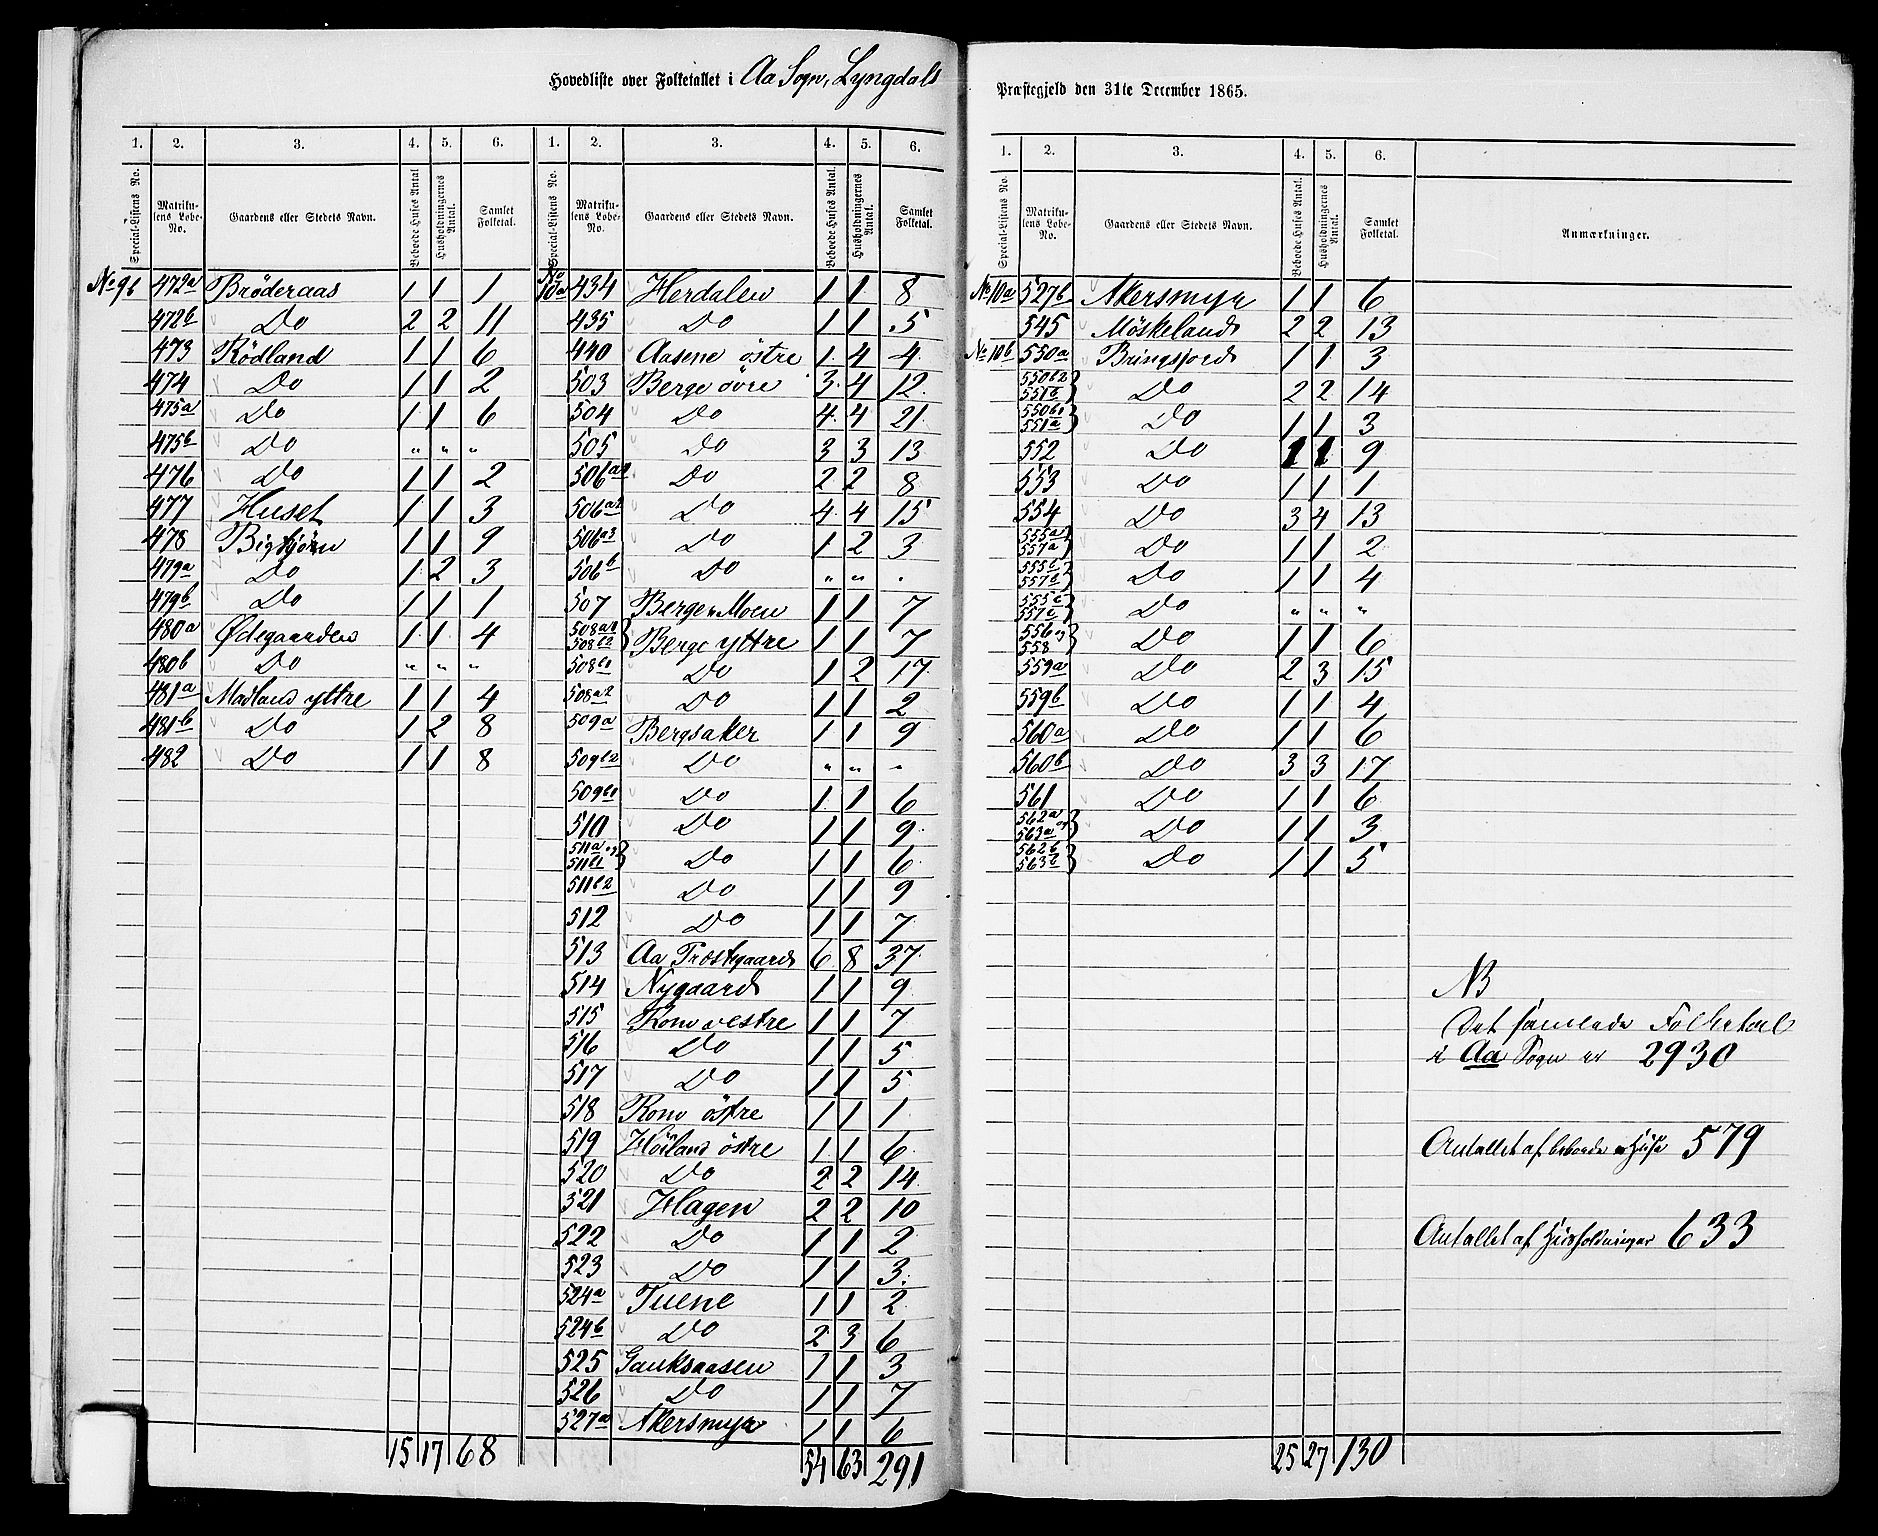 Hovedliste over Folketallet i Aa Sogn, Lyngdals Præstegjeld den 31te December 1865.
1. 2. 3. 4. 5. 6. 1. 2. 3. 4. 5. 6.
Special-Listens No. Matrikulens Løbe-No. Gaardens eller Stedets Navn. Beboede Huses Antal Husholdningernes Antal. Samlet Folketal. Special-Listens No. Matrikulens Løbe-No. Gaardens eller Stedets Navn. Beboede Huses Antal. Husholdningernes Antal. Samlet Folketal.
No 9b 472a Bröderaas 1 1 1
472b Do 2 2 11
473 Rödland 1 1 6
474 Do 1 1 2
475a Do 1 1 6
475b Do " " "
476 Do 1 1 2
477 Huset 1 1 3
478 Bigstjörn 1 1 9
479a Do 1 2 3
479b Do 1 1 1
480a Ødegaarden 1 1 4
480b Do " " "
481a Madland yttre 1 1 4
481b Do 1 2 8
482 Do 1 1 8
15 17 68
No 10a 434 Herdalen 1 1 8
435 Do 1 1 5
440 Aasene östre 1 4 4
503 Berge övre 3 4 12
504 Do 4 4 21
505 Do 3 3 13
506a1 Do 2 2 8
506a2 Do 4 4 15
506a3 Do 1 2 3
506b Do " " "
507 Berge Moen 1 1 7
508a1 508b2 Berge yttre 1 1 7
508b1 Do 1 2 17
508a2 Do 1 1 2
509a Bergsaker 1 1 9
509b2 Do " " "
509b1 Do 1 1 6
510 Do 1 1 9
511a og 511b1 Do 1 1 6
511b2 Do 1 1 9
512 Do 1 1 7
513 Aa Præstgaard 6 8 37
514 Nygaard 1 1 9
515 Rom vestre 1 1 7
516 Do 1 1 5
517 Do 1 1 5
518 Rom östre 1 1 1
519 Höiland östre 1 1 6
520 Do 2 2 14
521 Hagen 2 2 10
522 Do 1 1 2
523 Do 1 1 3
524a Tuene 1 1 2
524b Do 2 3 6
525 Gauksaasen 1 1 3
526 Do 1 1 7
527a Akersmyr 1 1 6
54 63 291
1. 2. 3. 4. 5. 6.
Special-Listens No. Matrikulens Løbe-No. Gaardens eller Stedets Navn. Beboede Huses Antal. Husholdningernes Antal. Samlet Folketal. Anmærkninger.
No 10a 527b Akersmyr 1 1 6
545 Möskeland 2 2 13
No 10b 550a Bringsjord 1 1 3
550b2 551b Do 2 2 14
550b1 551a Do 1 1 3
552 Do 1 1 9
553 Do 1 1 1
554 Do 3 4 13
555a 557a Do 1 1 2
555b 557b Do 1 1 4
555c 557c Do " " "
556 og 558 Do 1 1 6
559a Do 2 3 15
559b Do 1 1 4
560a Do 1 1 6
560b Do 3 3 17
561 Do 1 1 6
562a og 563a Do 1 1 3
562b 563b Do 1 1 5
25 27 130
NB
Det samlede Folketal
i Aa Sogn er 2930
Antallet af beboede Huse 579
Antallet af Husholdninger 633